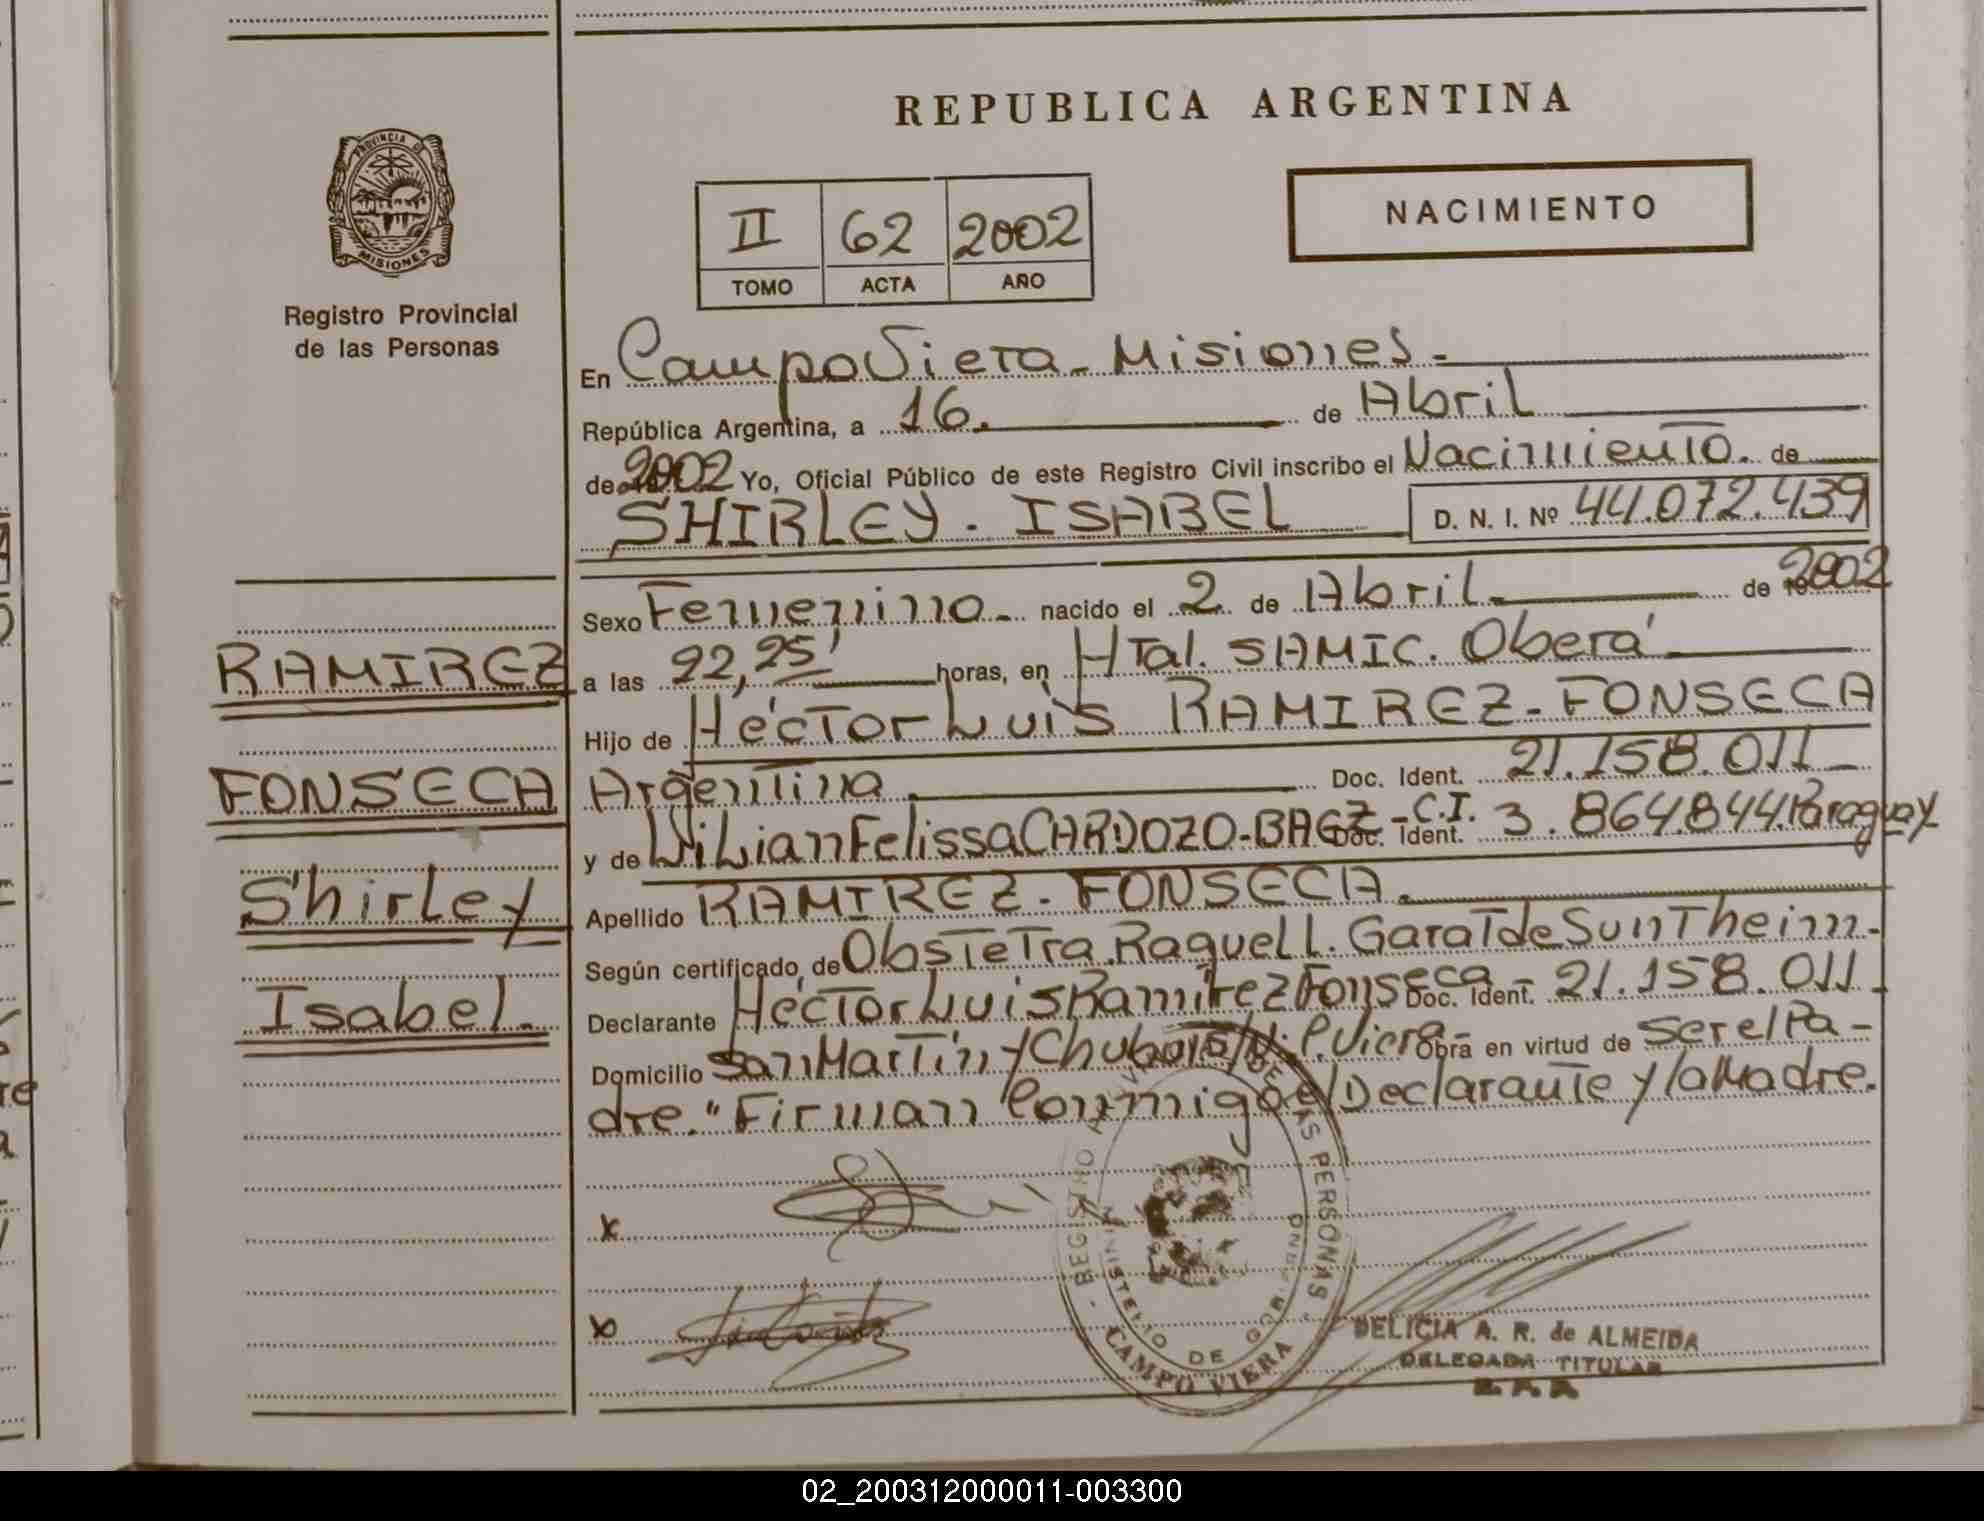 REPUBLICA ARGENTINA
PROVINCIA DE
MISIONES
Registro Provincial
de las Personas
NACIMIENTO
II 62 2002
TOMO ACTA AÑO
En Campo Viera - Misiones -
República Argentina, a 16. de Abril
de 2002 Yo, Oficial Público de este Registro Civil inscribo el Nacimiento. de
SHIRLEY - ISABEL D. N. I. Nº 44.072.439
Sexo Femenino - nacido el 2 de Abril - de 2002
a las 22,25' horas, en HTal. SAMIC. Oberá
Hijo de Héctor Luis RAMIREZ - FONSECA
Argentina Doc. Ident. 21.158.011 -
y de LiLian Felissa CARDOZO - BAEZ - C.I. Doc. Ident. 3.864.844. Paraguay
Apellido RAMIREZ - FONSECA.
Según certificado, de Obstetra. Raquel L. Garat de Suntheim -
Declarante Héctor Luis Ramírez Fonseca - Doc. Ident. 21.158.011
Domicilio San Martín y Chubut S/N. C. Viera - Obra en virtud de ser el Pa -
dre." Firman Conmigo el Declarante y la Madre.
RAMIREZ
FONSECA
Shirley
Isabel.
x
x
REGISTRO DE LAS PERSONAS
MINISTERIO DE
CAMPO VIERA
DELICIA A. R. de ALMEIDA
DELEGADA TITULAR
02_200312000011-003300